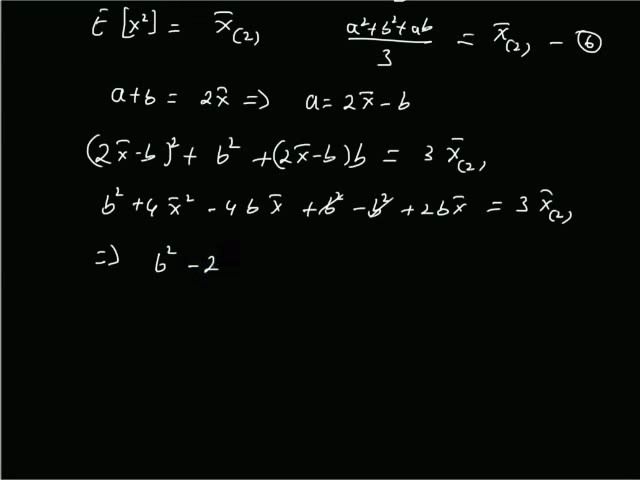 E [x²] = x̄₍₂₎   (a²+b²+ab)/3 = x̄₍₂₎ – ⑥
a+b = 2x̄ => a = 2x̄ – b
(2x̄-b)² + b² + (2x̄-b)b = 3 x̄₍₂₎
b² + 4x̄² - 4bx̄ + b² - b² + 2bx̄ = 3 x̄₍₂₎
=> b² - 2